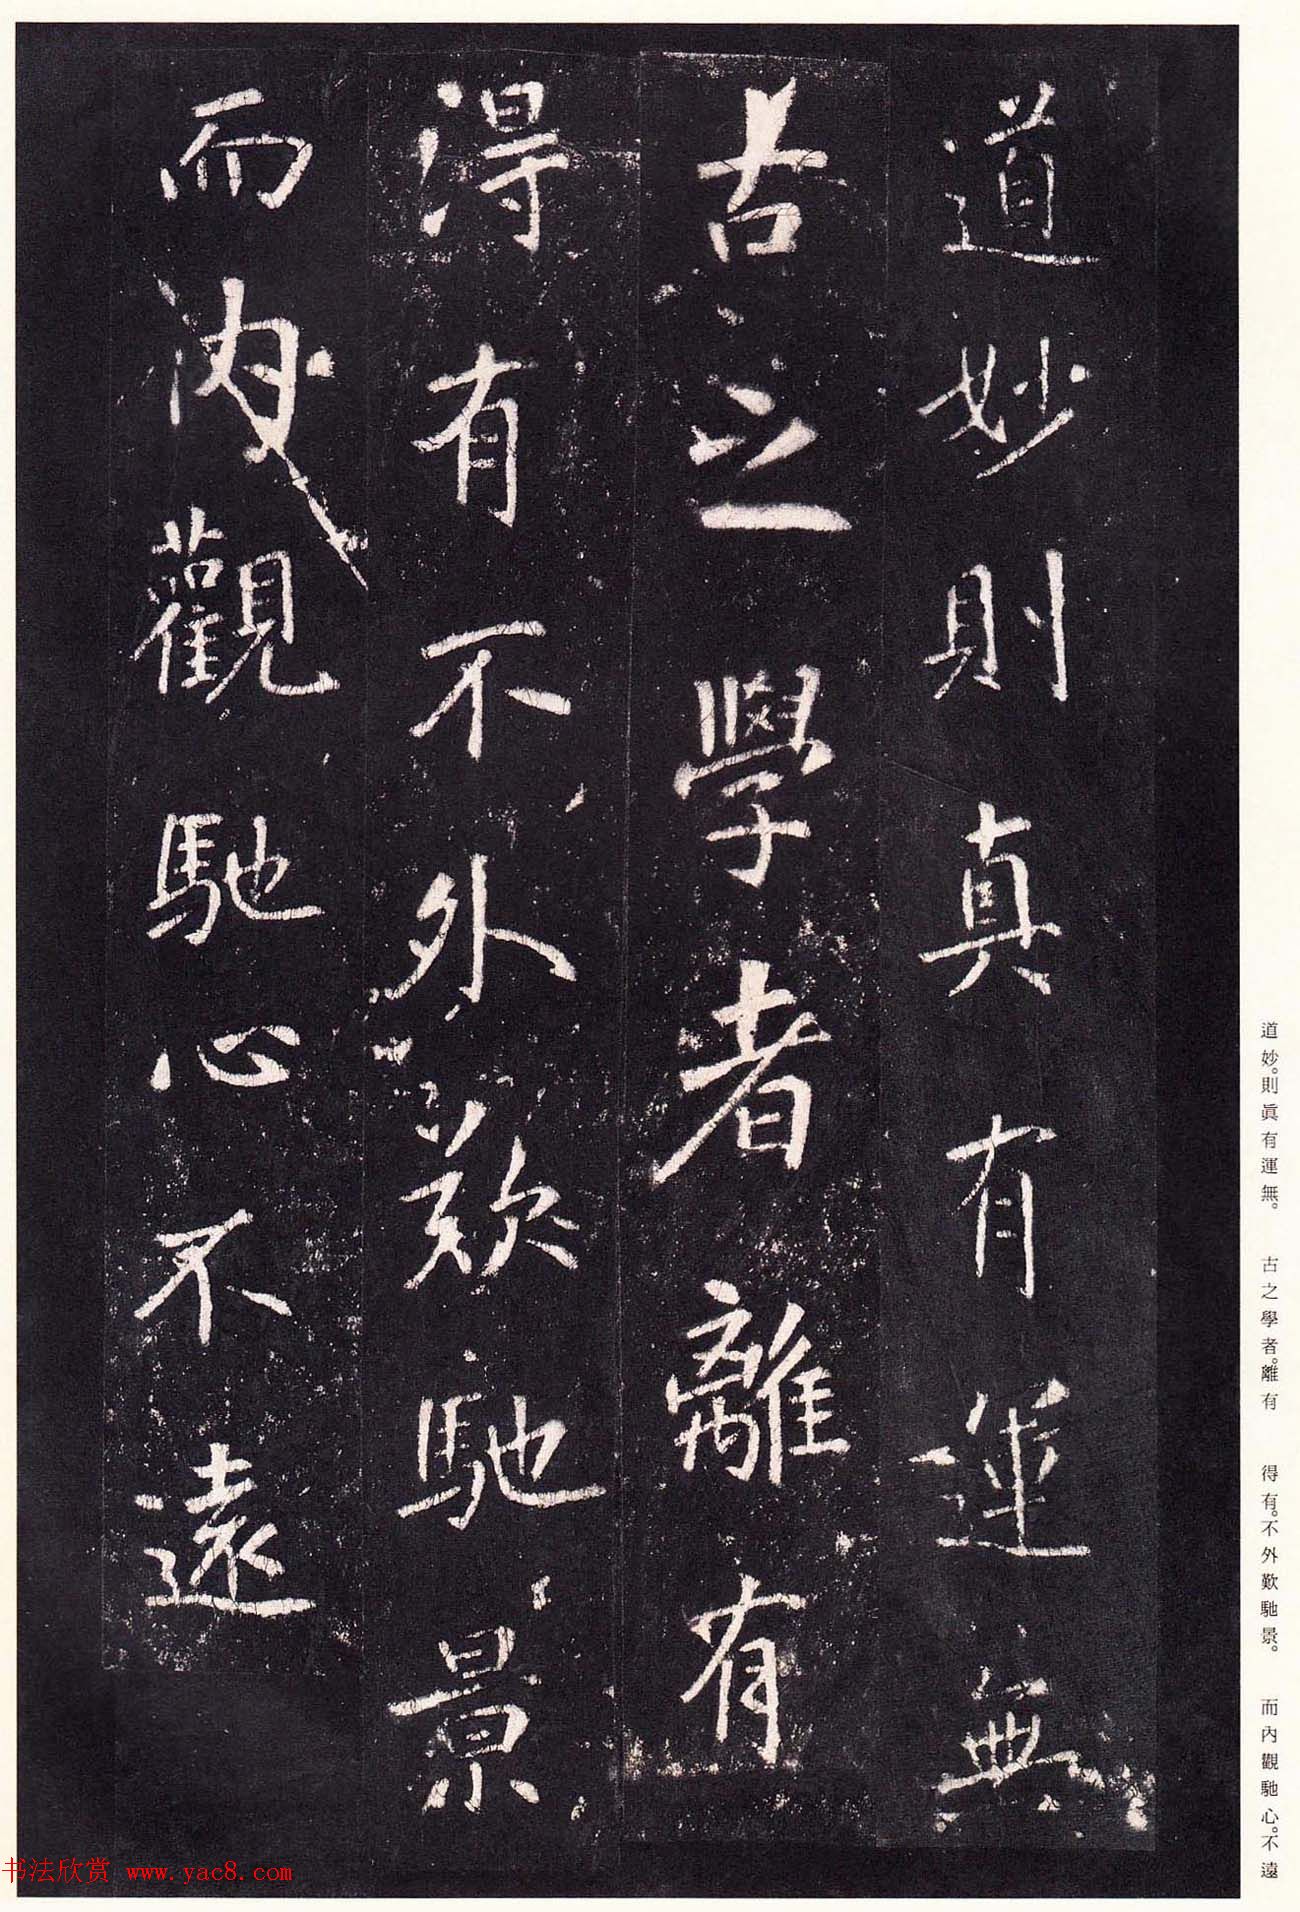 道妙則真有運無
古之學者離有
得有不外歎馳景
而內觀馳心不遠
道妙。則眞有運無。　古之學者。離有　得有。不外歎馳景。　而內觀馳心。不遠
书法欣赏 www.yac8.com